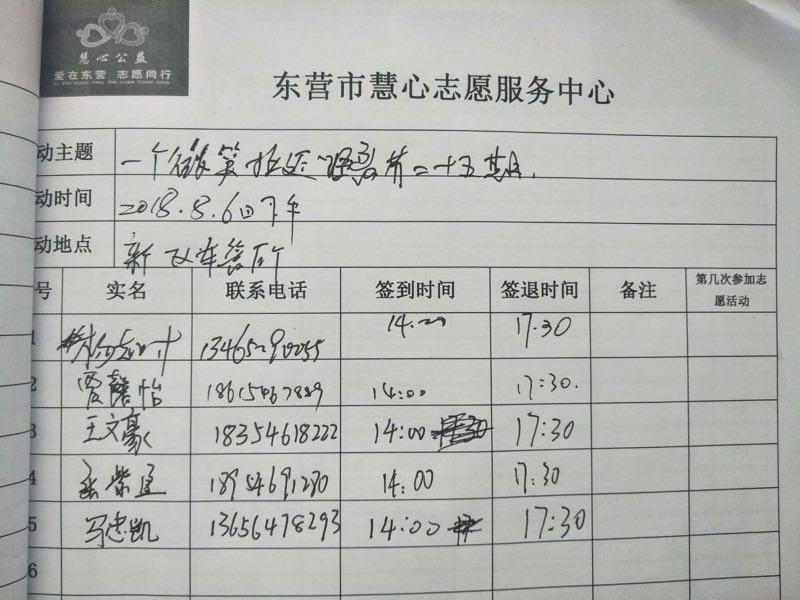 慧心公益
爱在东营 志愿同行
东营市慧心志愿服务中心
动主题 一个微笑 第二十五期.
动时间 2018.8.6日下午
动地点 新 车管所
号 实名 联系电话 签到时间 签退时间 备注 第几次参加志
愿活动
1 14:00 17:30
2 贾馨怡 14:00 17:30.
3 王文豪 18354618222 14:00 17:30
4 18954691280 14:00 17:30
5 马忠凯 13656478293 14:00 17:30
6